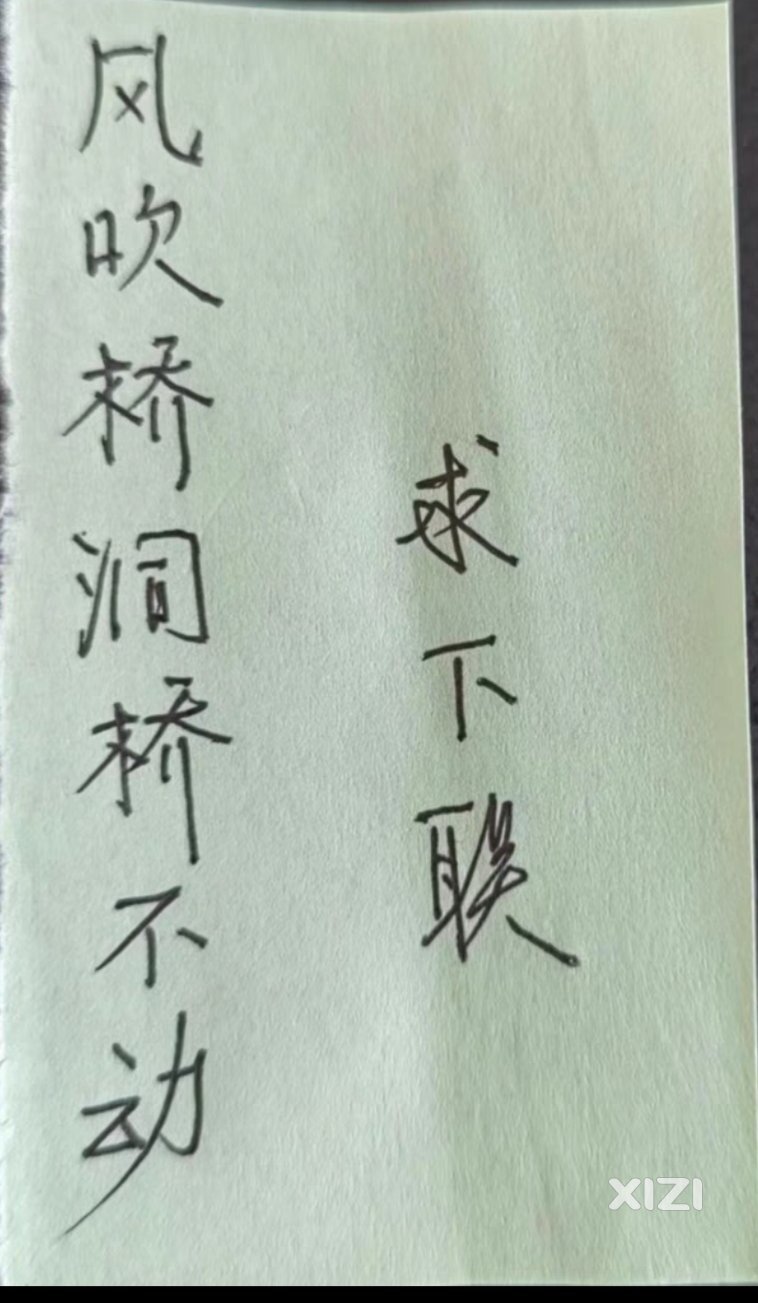 风吹桥洞桥不动
求下联
XIZI